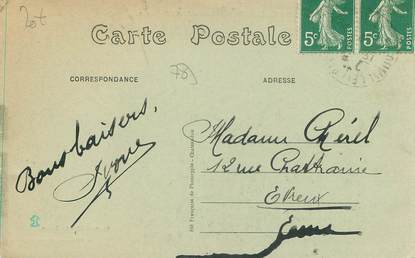 Carte Postale
CORRESPONDANCE
ADRESSE
5c POSTES
5c POSTES
78
Bons baisers,
Yvonne
Madame Chérel
12 rue Chartraine
Evreux
Eure